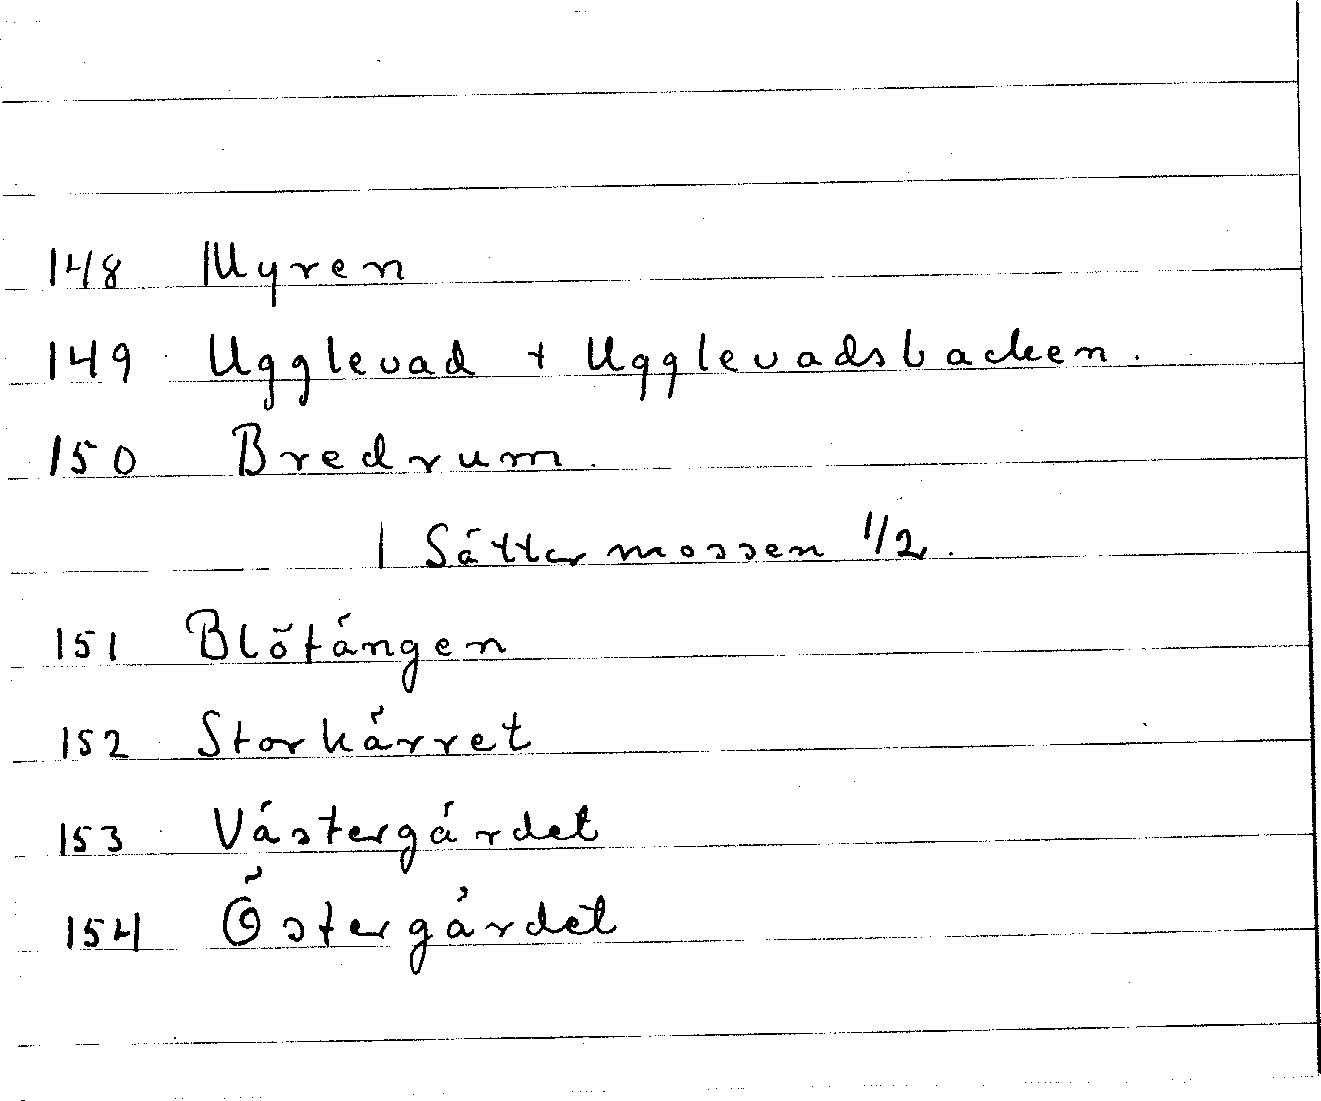 148 Myren
149 Ugglevad + Ugglevadsbacken.
150 Bredrum.
| Sättermossen 1/2.
151 Blötängen
152 Storkärret
153 Västergärdet
154 Östergärdet